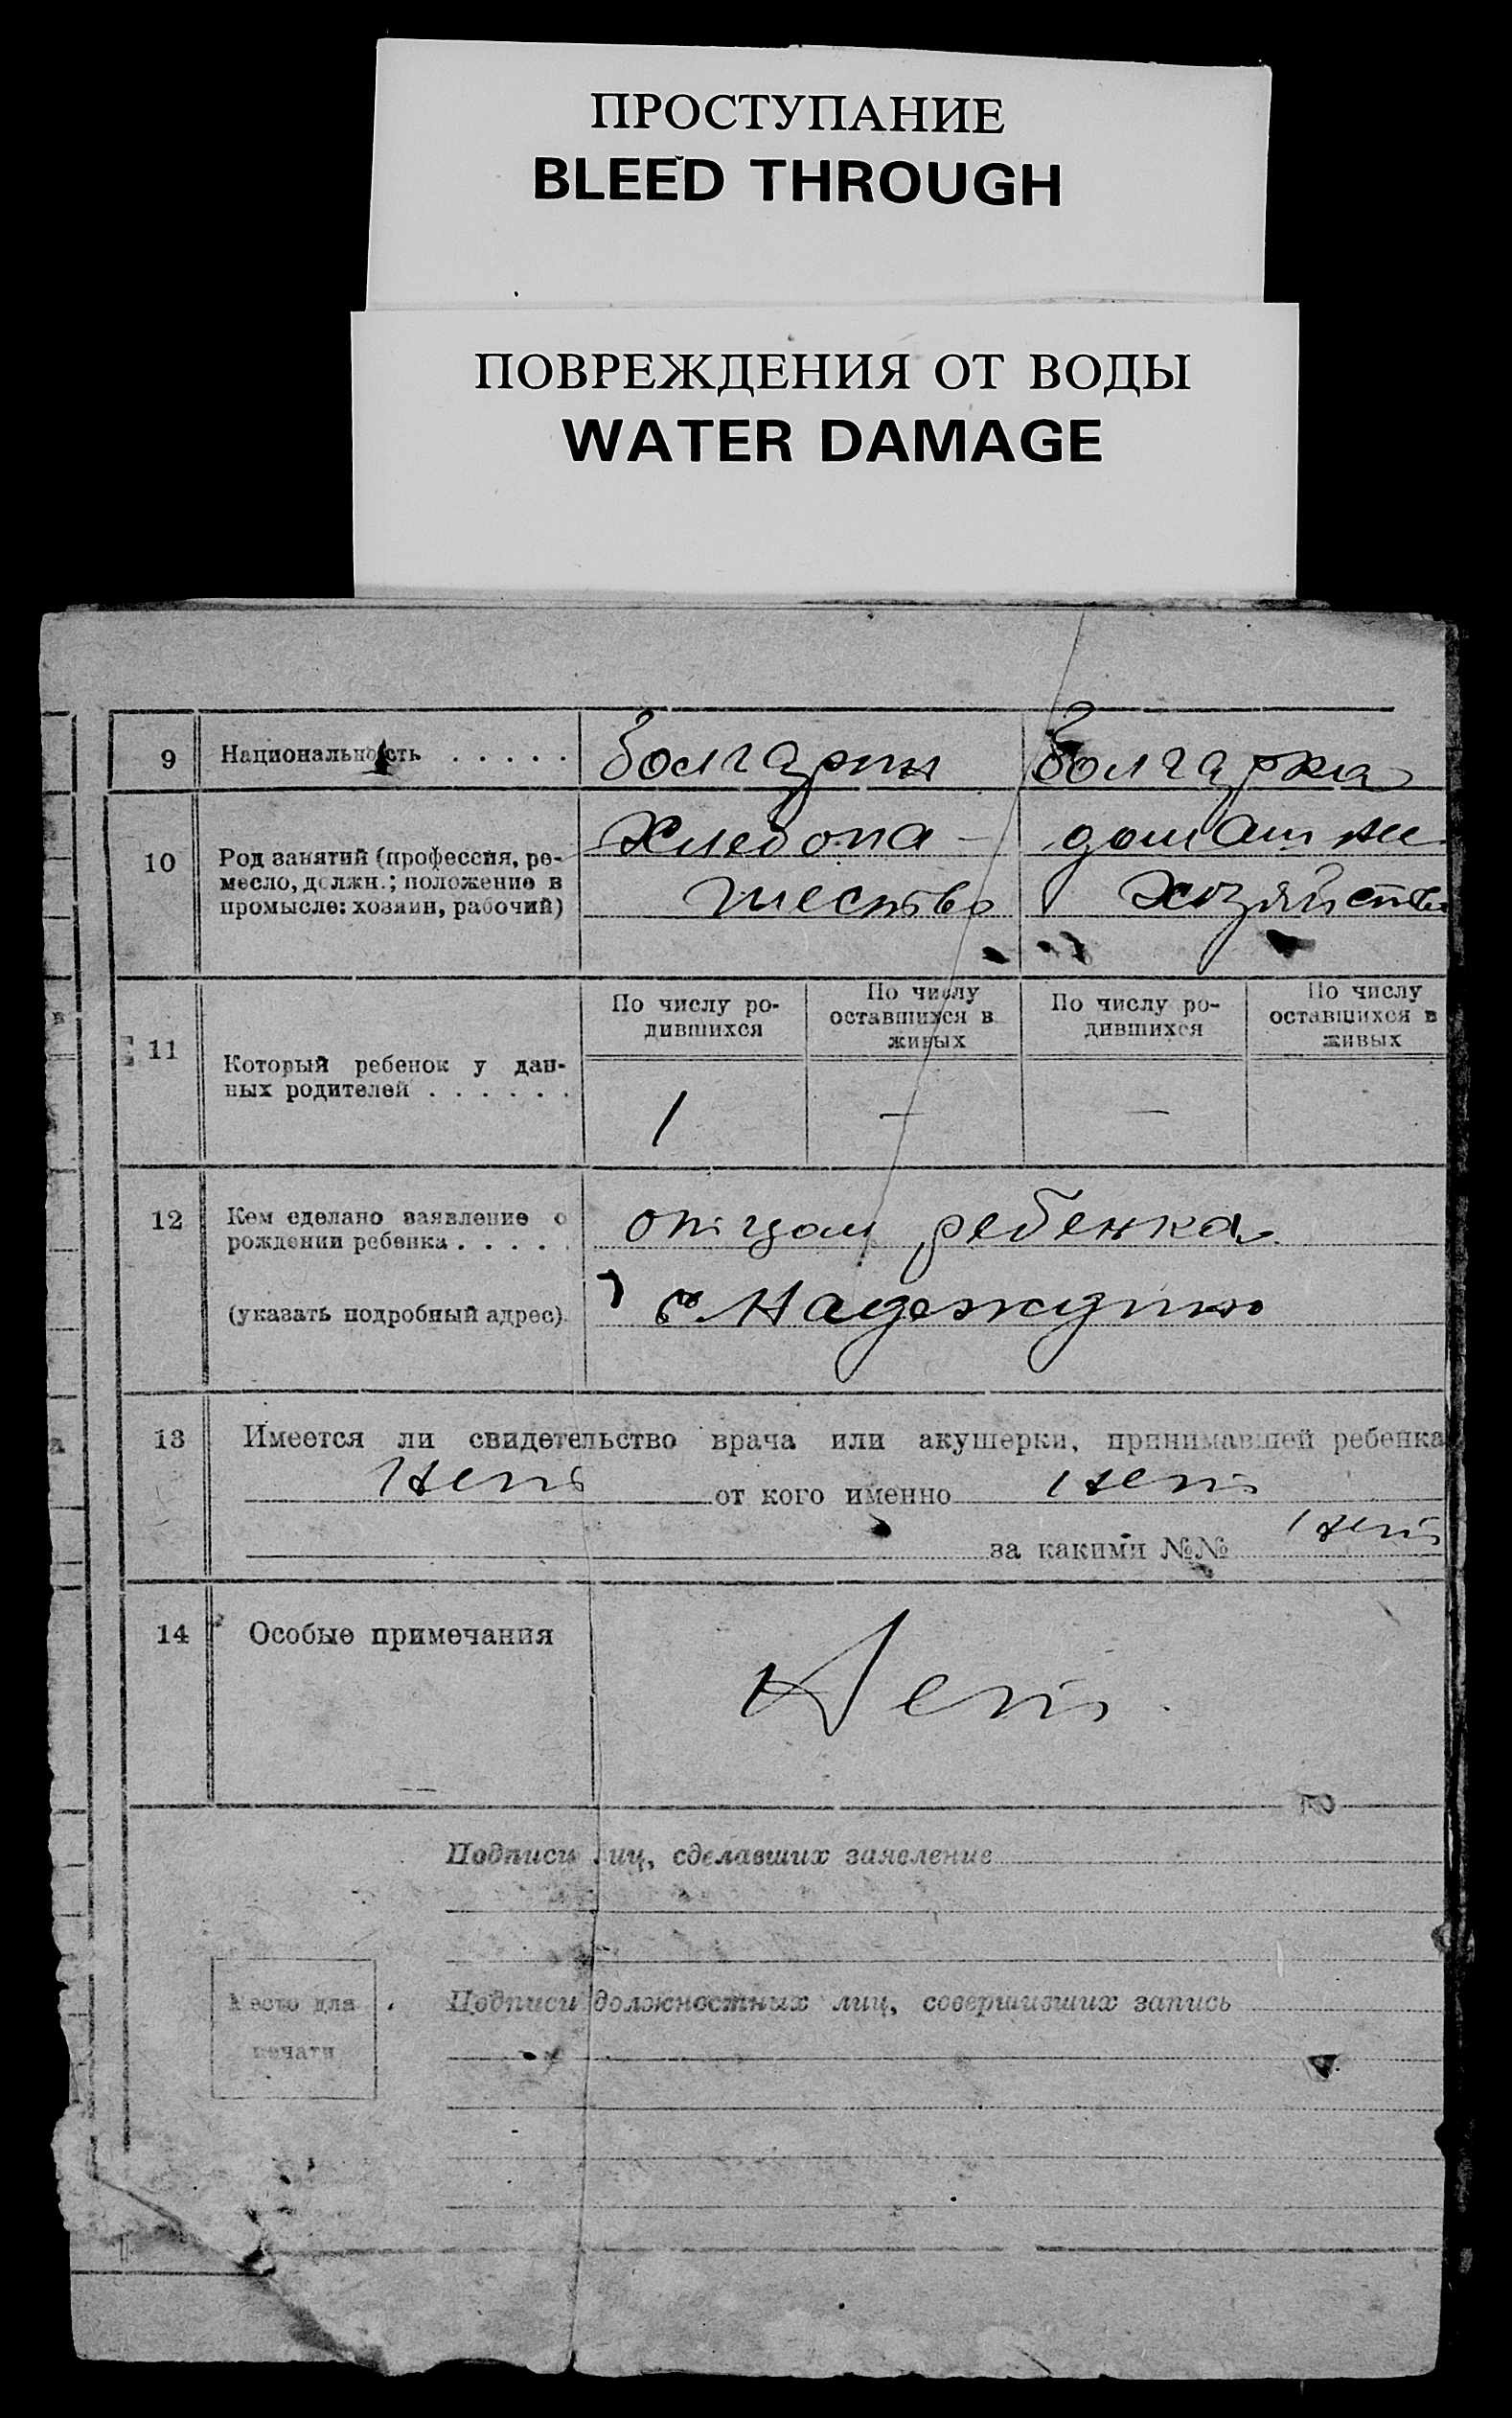 ПРОСТУПАНИЕ
BLEED THROUGH
ПОВРЕЖДЕНИЯ ОТ ВОДЫ
WATER DAMAGE
9 Национальность . . . . . болгарин болгарка
10 Род занятий (профессия, ре-
месло, должн.; положение в
промысле: хозяин, рабочий)
хлебопа-
шество
домашнее
хозяйство
11 Который ребенок у дан-
ных родителей . . . . . .
По числу ро-
дившихся
По числу
оставшихся в
живых
По числу ро-
дившихся
По числу
оставшихся в
живых
1 — —
12 Кем сделано заявление о
рождении ребенка . . . . .
(указать подробный адрес)
отцом ребенка
с. Надеждино
13 Имеется ли свидетельство врача или акушерки, принимавшей ребенка
Нет от кого именно нет
за какими №№ нет
14 Особые примечания
Нет.
Подписи лиц, сделавших заявление
Место для
печати
Подписи должностных лиц, совершивших запись